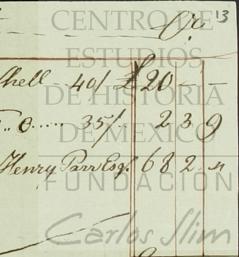 Cr. 13
CENTRO DE
ESTUDIOS
DE HISTORIA
DE MEXICO
FUNDACIÓN
Carlos Slim
hell 40/ £20 —
35/. 2 3 9
Henry Parr Esqr. 682. 4